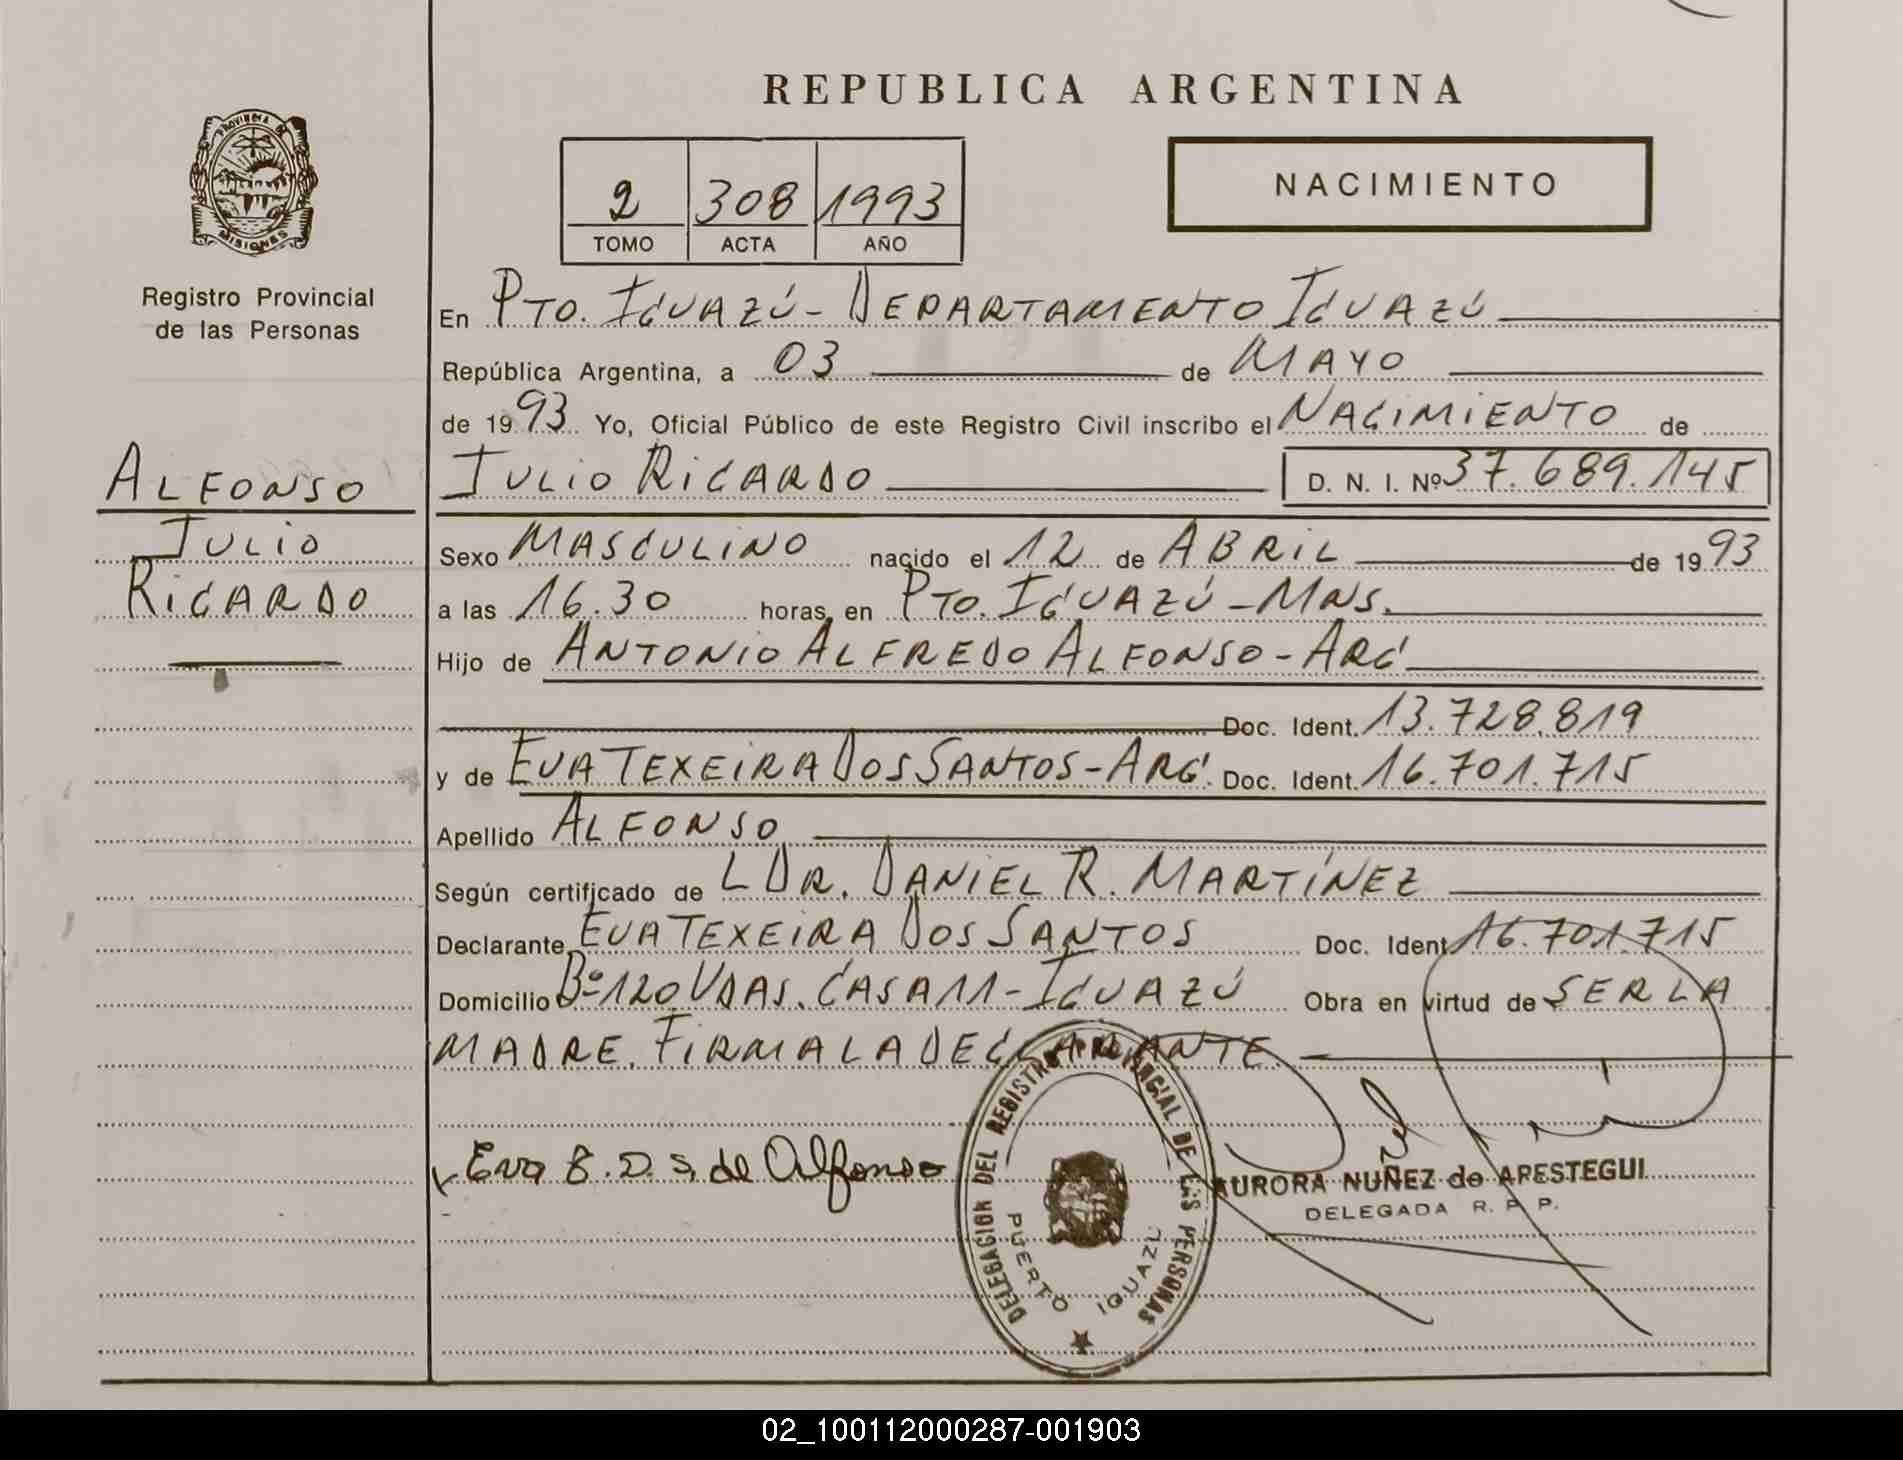 REPUBLICA ARGENTINA
PROVINCIA DE
MISIONES
Registro Provincial
de las Personas
2 308 1993
TOMO ACTA AÑO
NACIMIENTO
En PTO. IGUAZÚ - DEPARTAMENTO IGUAZÚ
República Argentina, a 03 de MAYO
de 1993 Yo, Oficial Público de este Registro Civil inscribo el NACIMIENTO de
JULIO RICARDO D. N. I. Nº 37.689.145
ALFONSO
JULIO
RICARDO
Sexo MASCULINO nacido el 12 de ABRIL de 1993
a las 16.30 horas, en PTO. IGUAZÚ - MNS.
Hijo de ANTONIO ALFREDO ALFONSO - ARG
Doc. Ident. 13.728.819
y de EVA TEXEIRA DOS SANTOS - ARG. Doc. Ident. 16.701.715
Apellido ALFONSO
Según certificado de L DR. DANIEL R. MARTÍNEZ
Declarante EVA TEXEIRA DOS SANTOS Doc. Ident 16.701.715
Domicilio Bº 120 VDAS. CASA 11 - IGUAZÚ Obra en virtud de SER LA
MADRE. FIRMA LA DECLARANTE
Eva T. D. S. de Alfonso
DELEGACION DEL REGISTRO PROVINCIAL DE LAS PERSONAS
PUERTO IGUAZU
AURORA NUÑEZ de ARESTEGUI
DELEGADA R. P. P.
02_100112000287-001903